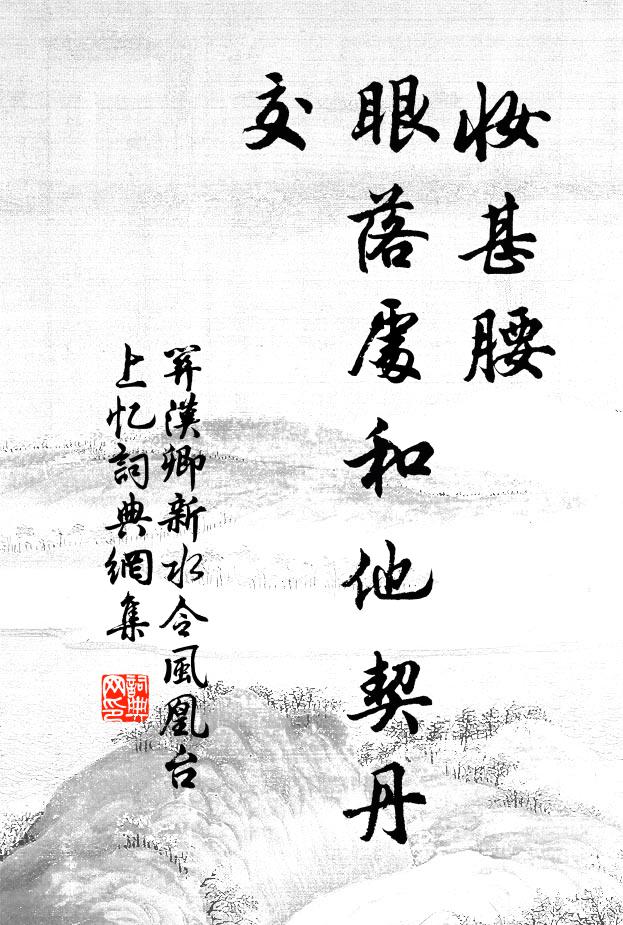 妆甚腰
眼落處和他契丹
交
關漢卿新水令風凰台
上忆詞典網集
詞典
网印